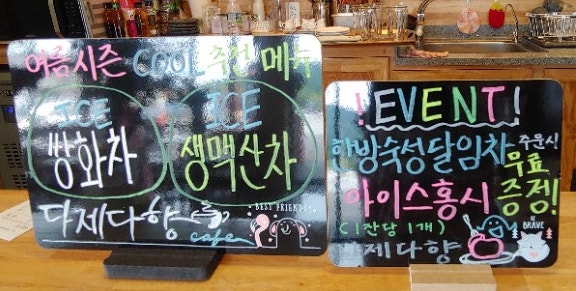 여름시즌 COOL 추천 메뉴
ICE ICE
쌍화차 생맥산차
다제다향
cafe
BEST FRIENDS
! EVENT !
한방숙성달임차 주문시
무료
아이스홍시 증정!
(1잔당 1개)
BE BRAVE
다제다향